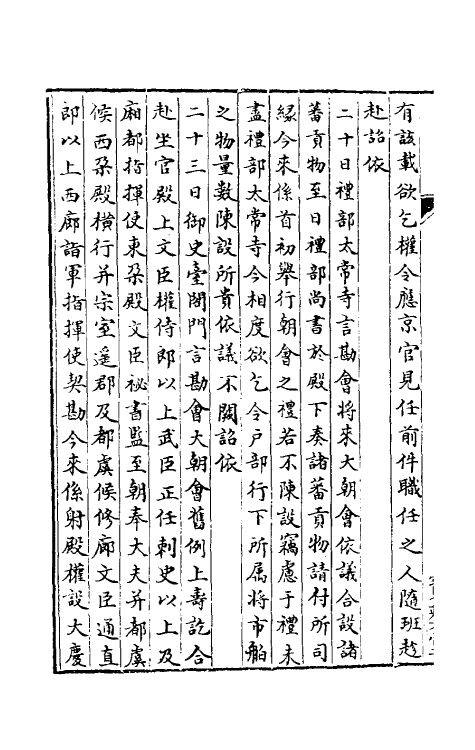 有該載欲乞權令應京官見任前件職任之人隨班趂
赴詔依
二十日禮部太常寺言勘會將來大朝會依議合設諸
蕃貢物至日禮部尚書於殿下奏諸蕃貢物請付所司
緣今來係首初舉行朝會之禮若不陳設竊慮于禮未
盡禮部太常寺今相度欲乞令戶部行下所属將市舶
之物量數陳設所貴依議不闕詔依
二十三日御史臺閤門言勘會大朝會舊例上壽訖合
赴坐官殿上文臣權侍郎以上武臣正任刺史以上及
廂都指揮使東朶殿文臣秘書監至朝奉大夫并都虞
候西朶殿横行并宗室遥郡及都虞候修廊文臣通直
郎以上西廊諸軍指揮使契勘今來係射殿權設大慶